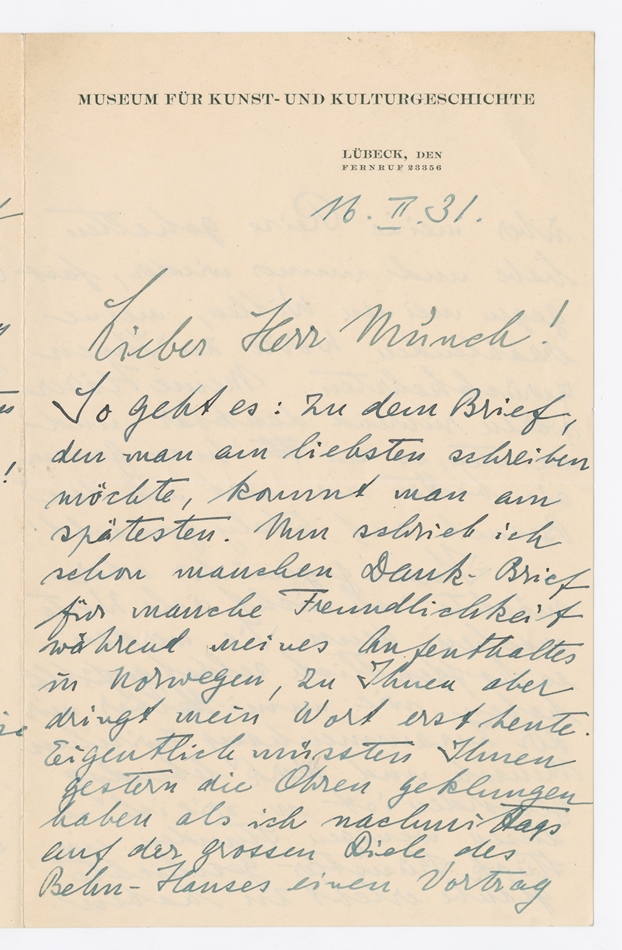 MUSEUM FÜR KUNST- UND KULTURGESCHICHTE
LÜBECK, DEN
FERNRUF 23356
16. II. 31.
Lieber Herr Münch!
So geht es: Zu dem Brief,
den man am liebsten schreiben
möchte, kommt man am
spätesten. Nun schrieb ich
schon manchen Dank-Brief
für manche Freundlichkeit
während meines Aufenthaltes
in Norwegen, zu Ihnen aber
dringt mein Wort erst heute.
Eigentlich müssten Ihnen
gestern die Ohren geklungen
haben als ich nachmittags
auf der grossen Diele des
Behn-Hauses einen Vortrag